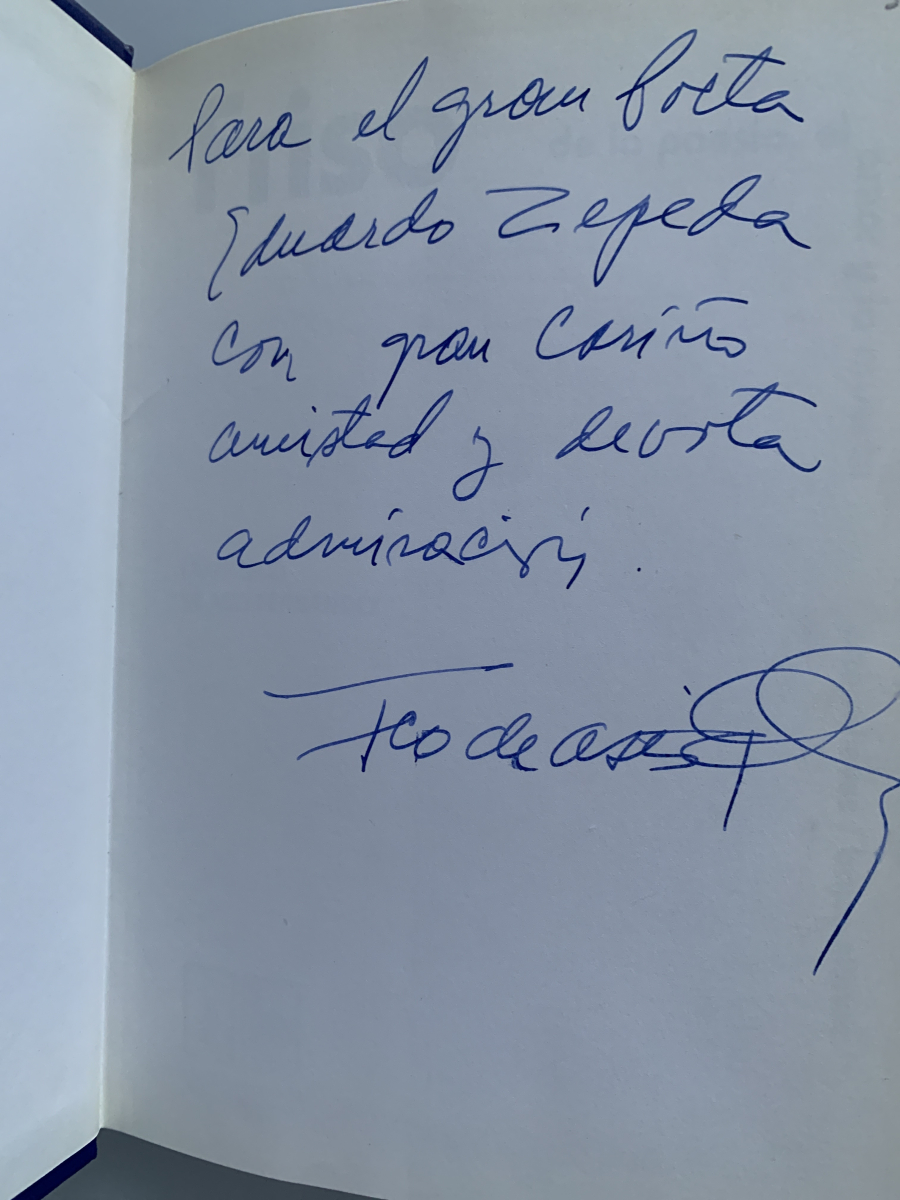 Para el gran Poeta
Eduardo Zepeda
con gran Cariño
amistad y devota
admiración.
Fco de asis